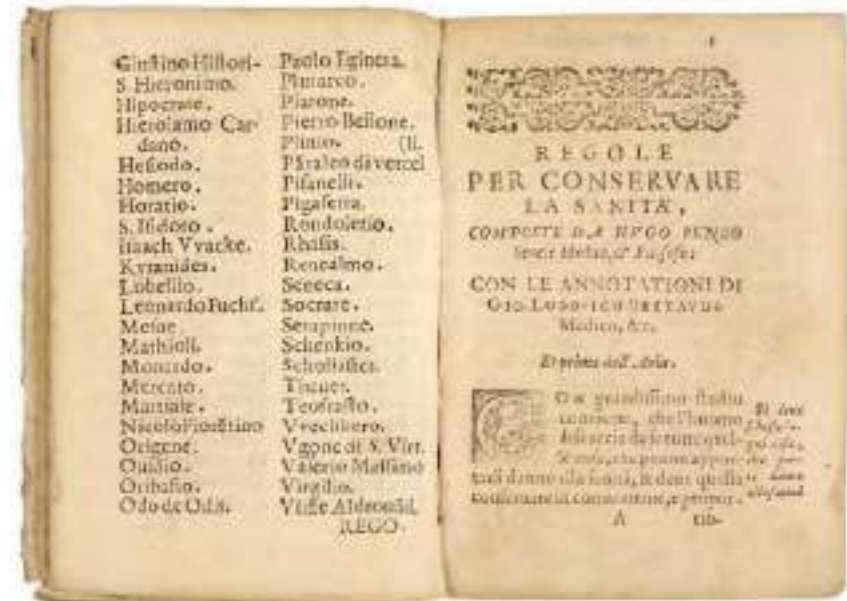 Giustino Histori-
S. Hieronimo.
Hipocrate.
Hierolamo Car-
dano.
Hesiodo.
Homero.
Horatio.
S. Isidoro.
Isaach Vvacke.
Kyranides.
Lobellio.
Leonardo Fuchs.
Mesue
Mathioli.
Monardo.
Mercato.
Martiale.
Nicolo Fiorētino
Origene.
Ouidio.
Oribasio.
Odo de Odis.
Paolo Egineta.
Plutarco.
Platone.
Pietro Bellone.
Plinio. (li.
Paraleo da vercel
Pisanelli.
Pigafetta.
Rondoletio.
Rhasis.
Renealmo.
Seneca.
Socrate.
Serapione.
Schenkio.
Scholiastes.
Theuet.
Teofrasto.
Vvechkero.
Vgone di S. Vitt.
Valerio Massimo
Virgilio.
Vlisse Aldrouād.
REGO-
REGOLE
PER CONSERVARE
LA SANITA',
COMPOSTE DA HVGO BENZO
Senese Medico, & Filosofo:
CON LE ANNOTATIONI DI
GIO. LODOVICO BERTALDO
Medico, &c.
Et prima dell'Aria.
Con grandissimo studio
conuiene, che l'huomo
danno alla sanità, & deue questa
A